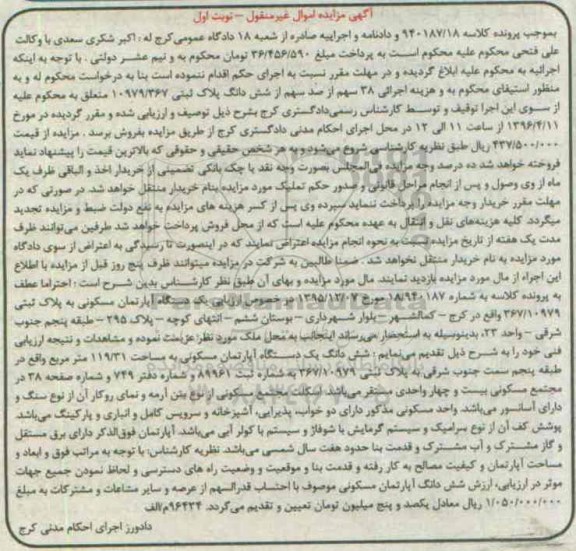 آگهی مزایده اموال غیرمنقول – نوبت اول
بموجب پرونده کلاسه ۹۴۰۱۸۷/۱۸ و دادنامه و اجراییه صادره از شعبه ۱۸ دادگاه عمومی کرج له : اکبر شکری سعدی با وکالت
علی فتحی محکوم علیه محکوم است به پرداخت مبلغ ۳۶/۴۵۶/۵۹۰ تومان محکوم به و نیم عشر دولتی . با توجه به اینکه
اجرائیه به محکوم علیه ابلاغ گردیده و در مهلت مقرر نسبت به اجرای حکم اقدام ننموده است بنا به درخواست محکوم له و به
منظور استیفای محکوم به و هزینه اجرائی ۳۸ سهم از صد سهم از شش دانگ پلاک ثبتی ۱۰۹۷۹/۳۶۷ متعلق به محکوم علیه
از سوی این اجرا توقیف و توسط کارشناس رسمی دادگستری کرج بشرح ذیل توصیف و ارزیابی شده و مقرر گردیده در مورخ
۱۳۹۶/۴/۱۱ از ساعت ۱۱ الی ۱۲ در محل اجرای احکام مدنی دادگستری کرج از طریق مزایده بفروش برسد . مزایده از قیمت
۴۳۷/۵۰۰/۰۰۰ ریال طبق نظریه کارشناسی شروع می‌شود و به هر شخص حقیقی و حقوقی که بالاترین قیمت را پیشنهاد نماید
فروخته خواهد شد ده درصد وجه مزایده فی‌المجلس بصورت وجه نقد یا چک بانکی تضمینی از خریدار اخذ و الباقی ظرف یک
ماه از وی وصول و پس از انجام مراحل قانونی و صدور حکم تملیک مورد مزایده بنام خریدار منتقل خواهد شد. در صورتی که در
مهلت مقرر خریدار وجه مزایده را پرداخت ننماید سپرده وی پس از کسر هزینه های مزایده به نفع دولت ضبط و مزایده تجدید
میگردد. کلیه هزینه‌های نقل و انتقال به عهده محکوم علیه است که از محل فروش پرداخت خواهد شد طرفین می‌توانند ظرف
مدت یک هفته از تاریخ مزایده نسبت به نحوه انجام مزایده اعتراض نمایند که در اینصورت تا رسیدگی به اعتراض از سوی دادگاه
مورد مزایده به نام خریدار منتقل نخواهد شد . ضمنا طالبین به شرکت در مزایده میتوانند ظرف پنج روز قبل از مزایده با اطلاع
این اجراء از مال مورد مزایده بازدید نمایند. مال مورد مزایده و بهای آن طبق نظر کارشناس بدین شرح است : احتراما عطف
به پرونده کلاسه به شماره ۱۸/۹۴۰۱۸۷ مورخ ۱۳۹۵/۱۲/۰۷ در خصوص ارزیابی یک دستگاه آپارتمان مسکونی به پلاک ثبتی
۳۶۷/۱۰۹۷۹ واقع در کرج – کمالشهر – بلوار شهرداری – بوستان ششم – انتهای کوچه – پلاک ۲۹۵ – طبقه پنجم جنوب
شرقی – واحد ۲۳، بدینوسیله به استحضار می‌رساند اینجانب به محل ملک مورد نظر عزیمت نموده و مشاهدات و نتیجه ارزیابی
فنی خود را به شرح ذیل تقدیم می‌نمایم : شش دانگ یک دستگاه آپارتمان مسکونی به مساحت ۱۱۹/۳۱ متر مربع واقع در
طبقه پنجم سمت جنوب شرقی به پلاک ثبتی ۳۶۷/۱۰۹۷۹ به شماره ثبت ۸۹۹۶۱ و شماره دفتر ۷۴۹ و شماره صفحه ۳۸ در
مجتمع مسکونی بیست و چهار واحدی مستقر می‌باشد. اسکلت مجتمع مسکونی از نوع بتن آرمه و نمای روکار آن از نوع سنگ و
دارای آسانسور می‌باشد. واحد مسکونی مذکور دارای دو خواب، پذیرایی، آشپزخانه و سرویس کامل و انباری و پارکینگ می‌باشد.
پوشش کف آن از نوع سرامیک و سیستم گرمایش با شوفاژ و سیستم با کولر آبی می‌باشد. آپارتمان فوق‌الذکر دارای برق مستقل
و گاز مشترک و آب مشترک و قدمت بنا حدود هفت سال شمسی می‌باشد. نظریه کارشناس: با توجه به مراتب فوق و ابعاد و
مساحت آپارتمان و کیفیت مصالح به کار رفته و قدمت بنا و موقعیت و وضعیت راه های دسترسی و لحاظ نمودن جمیع جهات
موثر در ارزیابی، ارزش شش دانگ آپارتمان مسکونی موصوف با احتساب قدرالسهم از عرصه و سایر مشاعات و مشترکات به مبلغ
۱/۰۵۰/۰۰۰/۰۰۰ ریال معادل یکصد و پنج میلیون تومان تعیین و تقدیم می‌گردد. ۹۶۴۲۴/م/الف
دادورز اجرای احکام مدنی کرج